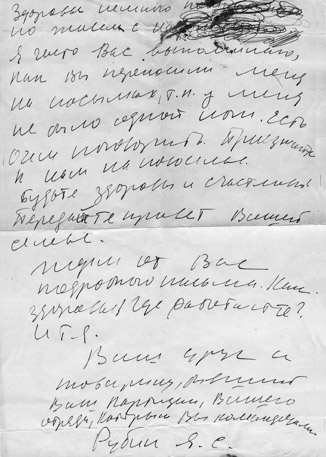 Здоровье немного
но живём с
Я часто Вас вспоминаю,
как Вы переносили меня
на носилках, т.к. у меня
не было одной ноги. Есть
о чем поговорить. Приезжайте
к нам на
Будьте здоровы и счастливы
Передайте привет Вашей
семье.
Ждем от Вас
подробного письма. Как
здоровье? Где работаете?
и т.д.
Ваш друг и
товарищ, бывший
Ваш партизан, Вашего
отряда, который Вы командовали
Рубин Я.С.